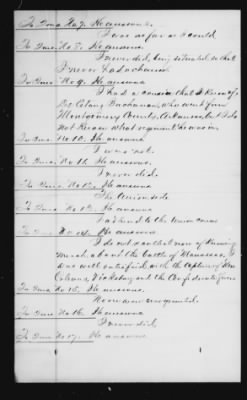 To Ques No 7. He answers
I was as far as I could.
To Ques No 8. He answers
I never did, being situated so that
I never had a chance.
To Ques No 9. He answers
I had a cousin that I know of
Buchanan, who went from
Montgomery County, Arkansas, but I do
not know what regiment he was in.
To Ques No 10. He answers
I was not.
To Ques No 11. He answers.
I never did.
To Ques No 12. He answers
The Union side
To Ques No 13. He answers
I adhered to the Union cause
To Ques No 14. He answers
I do not recollect now of knowing
much about the battle of Manassas. I
was well satisfied with the capture of New
Orleans, Vicksburg and the Confederate forces
To Ques No 15. He answers.
No one ever
To Ques No 16. He answers
I never did.
To Ques No 17. He answers